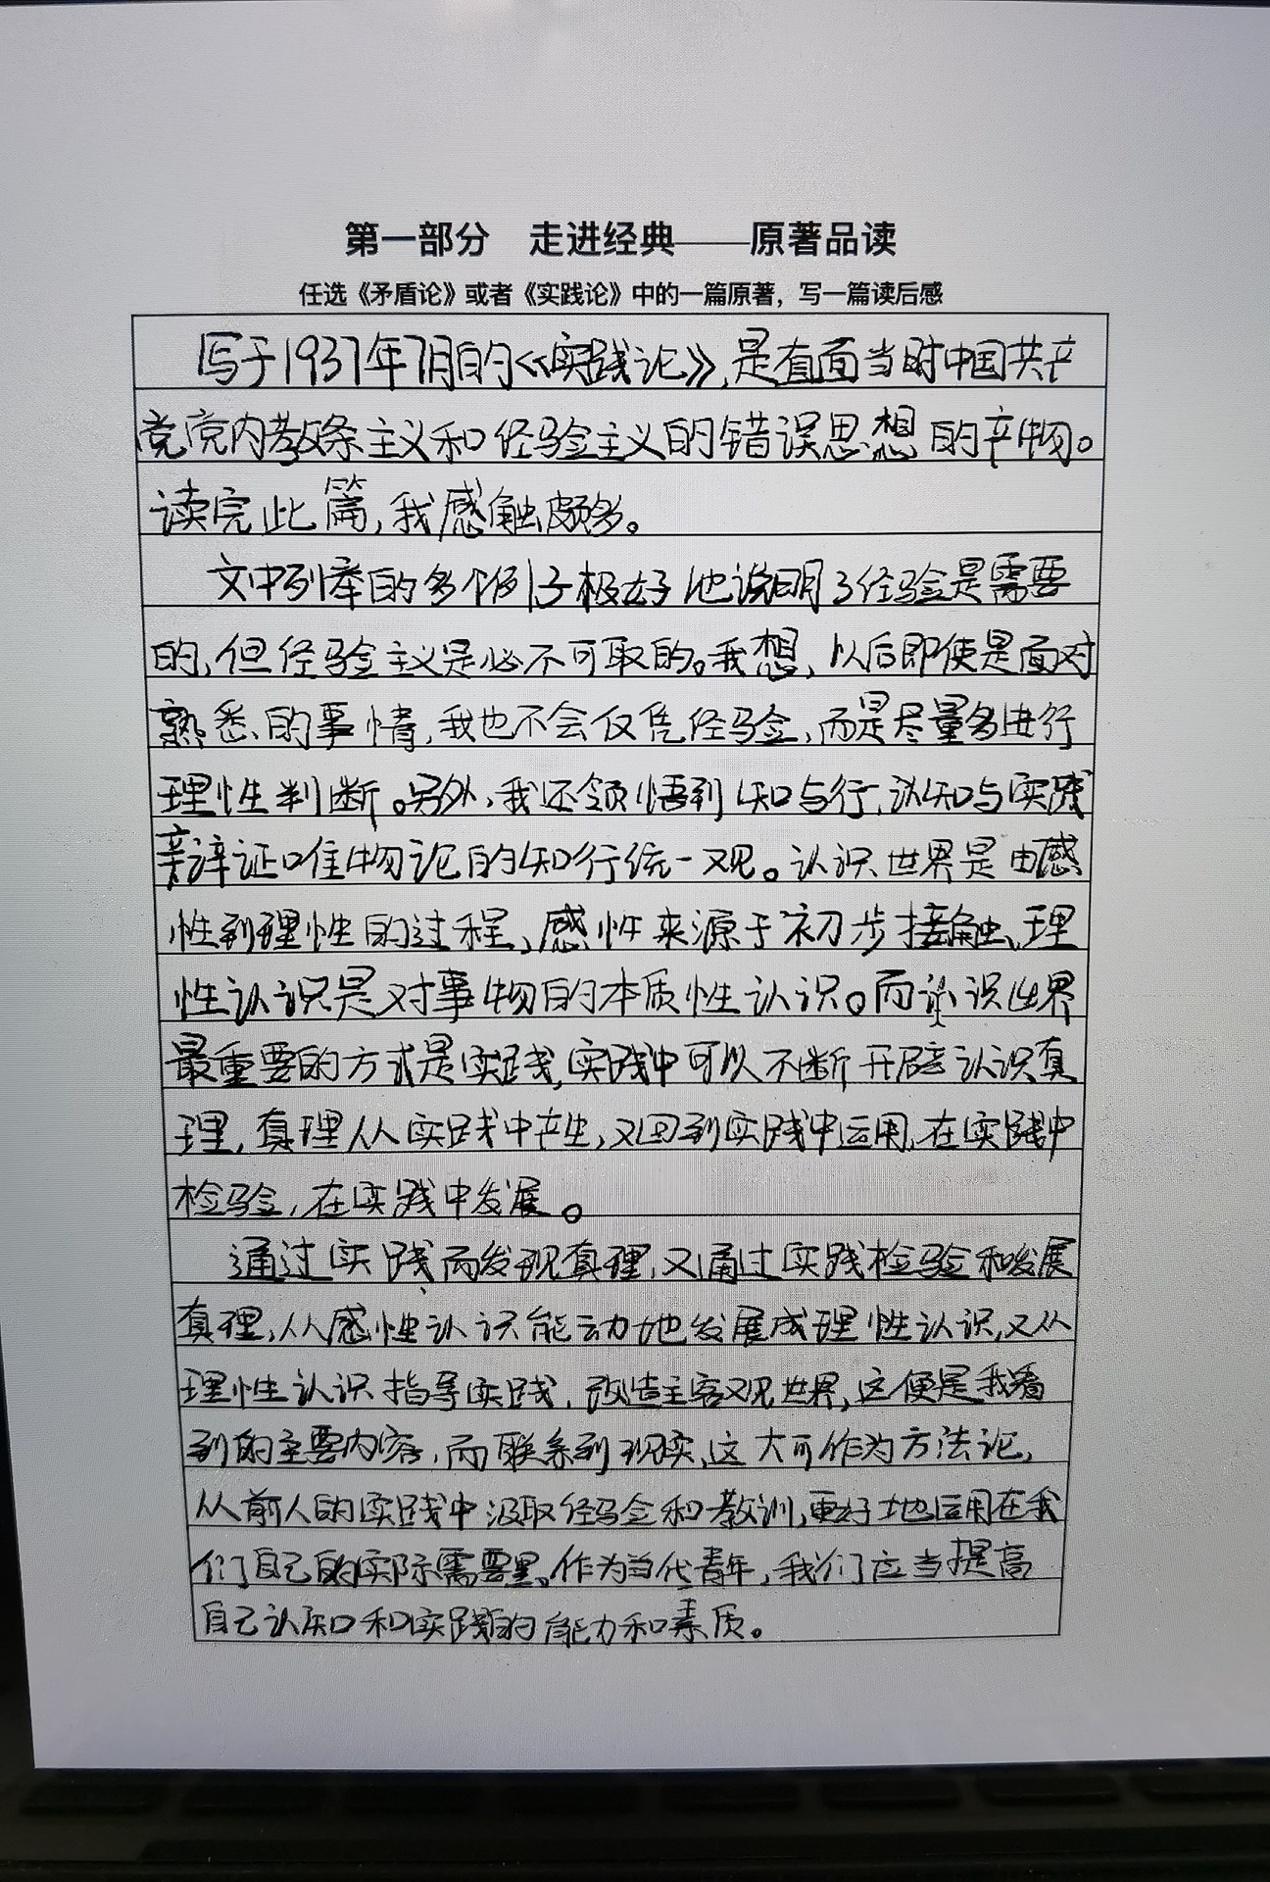 第一部分 走进经典——原著品读
任选《矛盾论》或者《实践论》中的一篇原著，写一篇读后感
写于1937年7月的《实践论》，是直面当时中国共产
党党内教条主义和经验主义的错误思想的产物。
读完此篇，我感触颇多。
文中列举的多个例子极好地说明了经验是需要
的，但经验主义是必不可取的。我想，以后即使是面对
熟悉的事情，我也不会仅凭经验，而是尽量多进行
理性判断。另外，我还领悟到知与行，认知与实践
辩证唯物论的知行统一观。认识世界是由感
性到理性的过程，感性来源于初步接触，理
性认识是对事物的本质性认识。而认识世界
最重要的方式是实践，实践中可以不断开辟认识真
理，真理从实践中产生，又回到实践中运用，在实践中
检验，在实践中发展。
通过实践而发现真理，又通过实践检验和发展
真理，从感性认识能动地发展成理性认识，又从
理性认识指导实践，改造主客观世界，这便是我看
到的主要内容，而联系到现实，这大可作为方法论，
从前人的实践中汲取经验和教训，更好地运用在我
们自己的实际需要里。作为当代青年，我们应当提高
自己认知和实践的能力和素质。